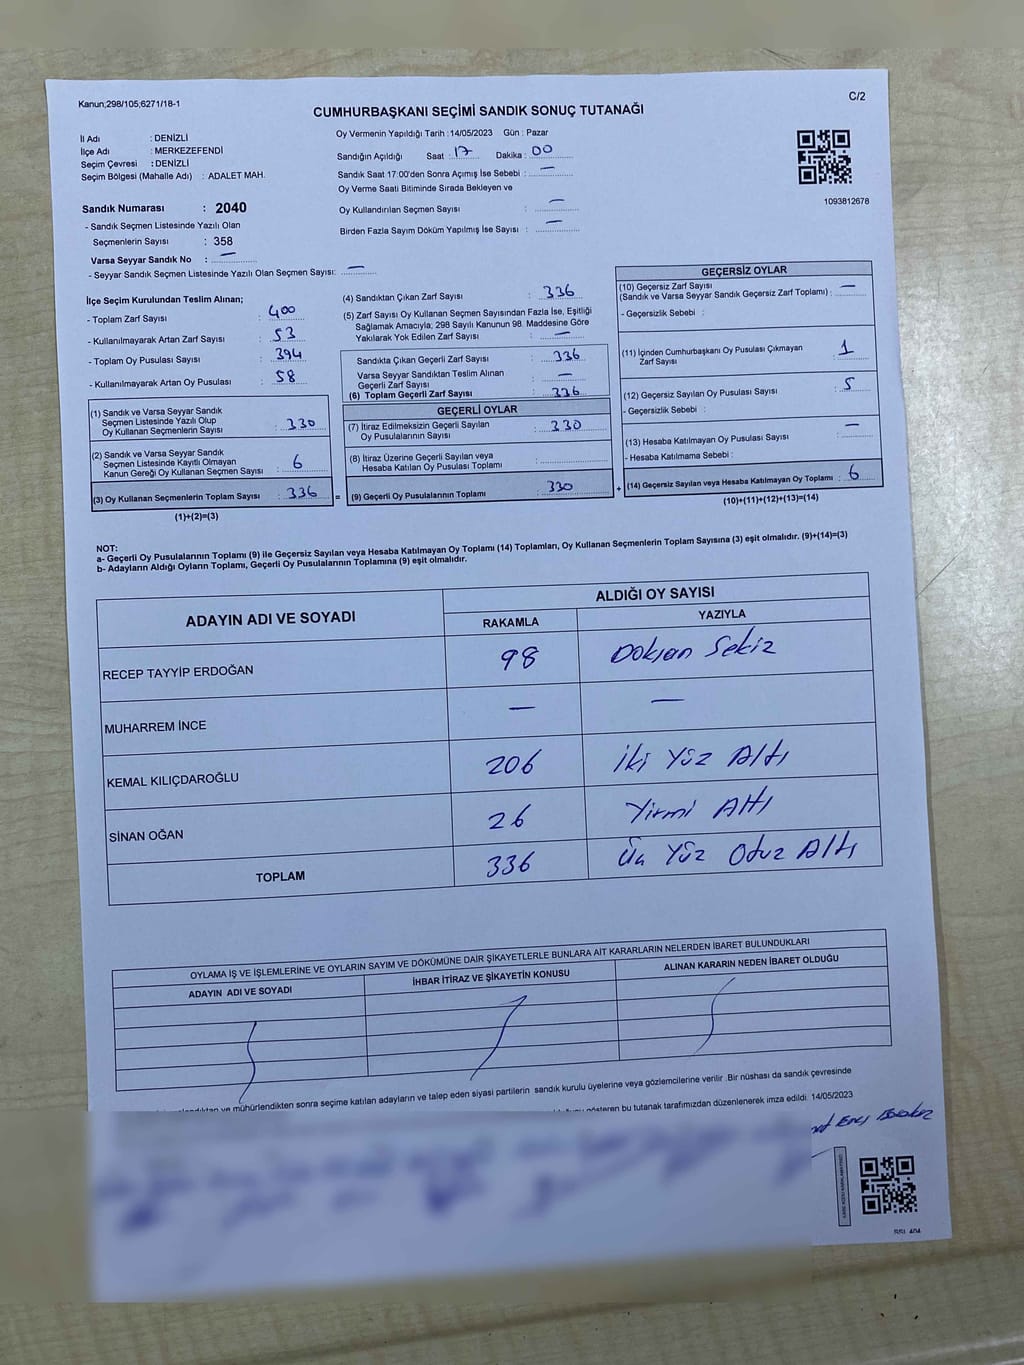 Kanun;298/105;6271/18-1
C/2
CUMHURBAŞKANI SEÇİMİ SANDIK SONUÇ TUTANAĞI
İl Adı : DENİZLİ
İlçe Adı : MERKEZEFENDİ
Seçim Çevresi : DENİZLİ
Seçim Bölgesi (Mahalle Adı) : ADALET MAH.
Sandık Numarası : 2040
- Sandık Seçmen Listesinde Yazılı Olan
Seçmenlerin Sayısı : 358
Varsa Seyyar Sandık No : —
- Seyyar Sandık Seçmen Listesinde Yazılı Olan Seçmen Sayısı: —
Oy Vermenin Yapıldığı Tarih : 14/05/2023 Gün : Pazar
Sandığın Açıldığı Saat : 17 Dakika : 00
Sandık Saat 17:00'den Sonra Açımış İse Sebebi : —
Oy Verme Saati Bitiminde Sırada Bekleyen ve
Oy Kullandırılan Seçmen Sayısı : —
Birden Fazla Sayım Döküm Yapılmış İse Sayısı : —
1093812678
İlçe Seçim Kurulundan Teslim Alınan;
- Toplam Zarf Sayısı : 400
- Kullanılmayarak Artan Zarf Sayısı : 53
- Toplam Oy Pusulası Sayısı : 394
- Kullanılmayarak Artan Oy Pusulası : 58
(1) Sandık ve Varsa Seyyar Sandık
Seçmen Listesinde Yazılı Olup
Oy Kullanan Seçmenlerin Sayısı : 330
(2) Sandık ve Varsa Seyyar Sandık
Seçmen Listesinde Kayıtlı Olmayan
Kanun Gereği Oy Kullanan Seçmen Sayısı : 6
(3) Oy Kullanan Seçmenlerin Toplam Sayısı : 336 =
(1)+(2)=(3)
(4) Sandıktan Çıkan Zarf Sayısı : 336
(5) Zarf Sayısı Oy Kullanan Seçmen Sayısından Fazla İse, Eşitliği
Sağlamak Amacıyla; 298 Sayılı Kanunun 98. Maddesine Göre
Yakılarak Yok Edilen Zarf Sayısı : —
Sandıkta Çıkan Geçerli Zarf Sayısı : 336
Varsa Seyyar Sandıktan Teslim Alınan
Geçerli Zarf Sayısı : —
(6) Toplam Geçerli Zarf Sayısı : 336
GEÇERLİ OYLAR
(7) İtiraz Edilmeksizin Geçerli Sayılan
Oy Pusulalarının Sayısı : 330
(8) İtiraz Üzerine Geçerli Sayılan veya
Hesaba Katılan Oy Pusulası Toplamı :
(9) Geçerli Oy Pusulalarının Toplamı : 330 +
GEÇERSİZ OYLAR
(10) Geçersiz Zarf Sayısı
(Sandık ve Varsa Seyyar Sandık Geçersiz Zarf Toplamı) : —
- Geçersizlik Sebebi :
(11) İçinden Cumhurbaşkanı Oy Pusulası Çıkmayan
Zarf Sayısı : 1
(12) Geçersiz Sayılan Oy Pusulası Sayısı : 5
- Geçersizlik Sebebi :
(13) Hesaba Katılmayan Oy Pusulası Sayısı : —
- Hesaba Katılmama Sebebi :
(14) Geçersiz Sayılan veya Hesaba Katılmayan Oy Toplamı : 6
(10)+(11)+(12)+(13)=(14)
NOT:
a- Geçerli Oy Pusulalarının Toplamı (9) ile Geçersiz Sayılan veya Hesaba Katılmayan Oy Toplamı (14) Toplamları, Oy Kullanan Seçmenlerin Toplam Sayısına (3) eşit olmalıdır. (9)+(14)=(3)
b- Adayların Aldığı Oyların Toplamı, Geçerli Oy Pusulalarının Toplamına (9) eşit olmalıdır.
ADAYIN ADI VE SOYADI
ALDIĞI OY SAYISI
RAKAMLA YAZIYLA
RECEP TAYYİP ERDOĞAN 98 Doksan Sekiz
MUHARREM İNCE — —
KEMAL KILIÇDAROĞLU 206 İki Yüz Altı
SİNAN OĞAN 26 Yirmi Altı
TOPLAM 336 Üç Yüz Otuz Altı
OYLAMA İŞ VE İŞLEMLERİNE VE OYLARIN SAYIM VE DÖKÜMÜNE DAİR ŞİKAYETLERLE BUNLARA AİT KARARLARIN NELERDEN İBARET BULUNDUKLARI
ADAYIN ADI VE SOYADI İHBAR İTİRAZ VE ŞİKAYETİN KONUSU ALINAN KARARIN NEDEN İBARET OLDUĞU
ve mühürlendikten sonra seçime katılan adayların ve talep eden siyasi partilerin sandık kurulu üyelerine veya gözlemcilerine verilir .Bir nüshası da sandık çevresinde
gösteren bu tutanak tarafımızdan düzenlenerek imza edildi. 14/05/2023